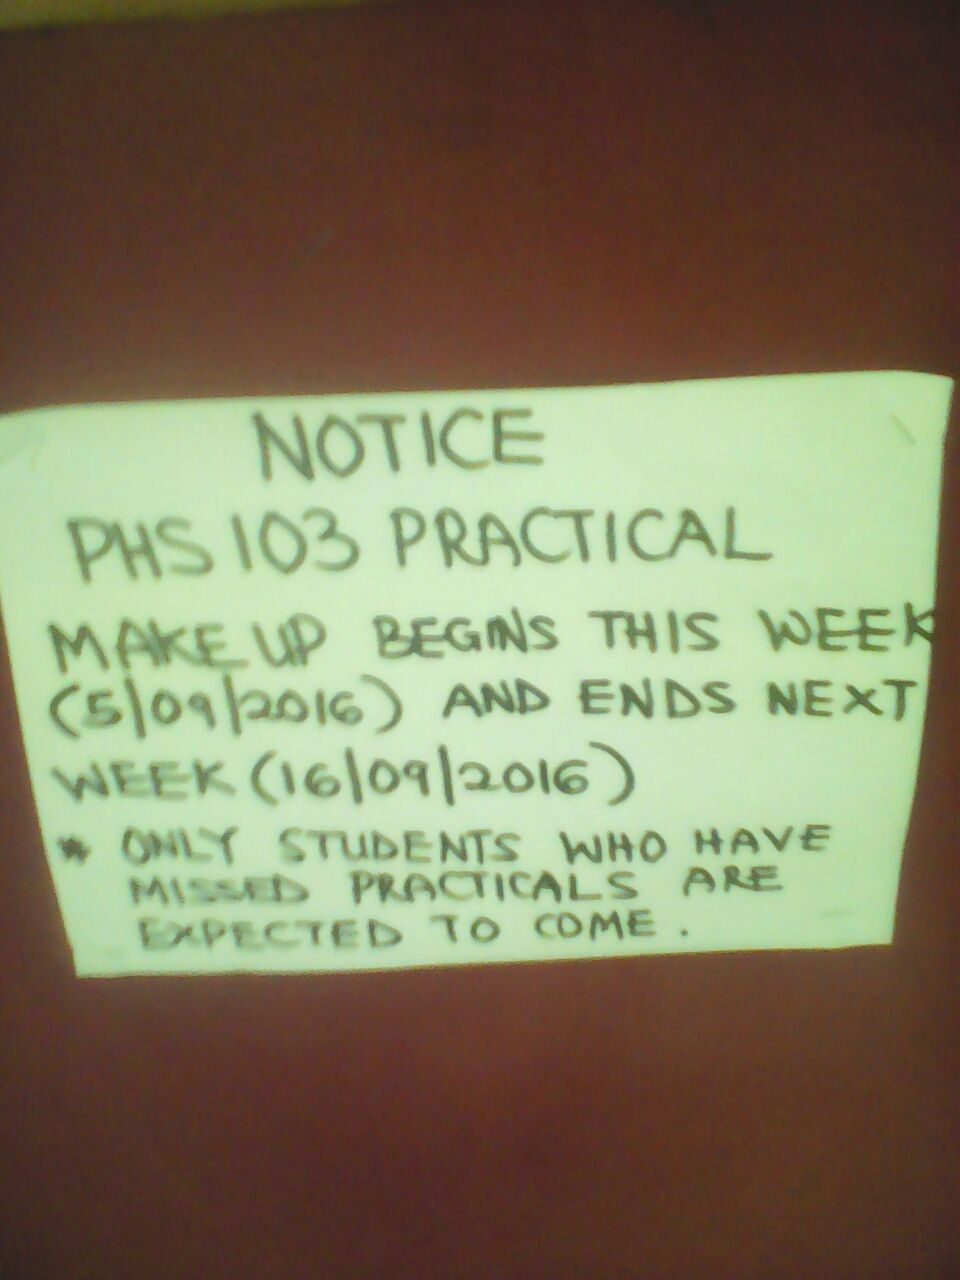 NOTICE
PHS 103 PRACTICAL
MAKE UP BEGINS THIS WEEK
(5/09/2016) AND ENDS NEXT
WEEK (16/09/2016)
* ONLY STUDENTS WHO HAVE
MISSED PRACTICALS ARE
EXPECTED TO COME.